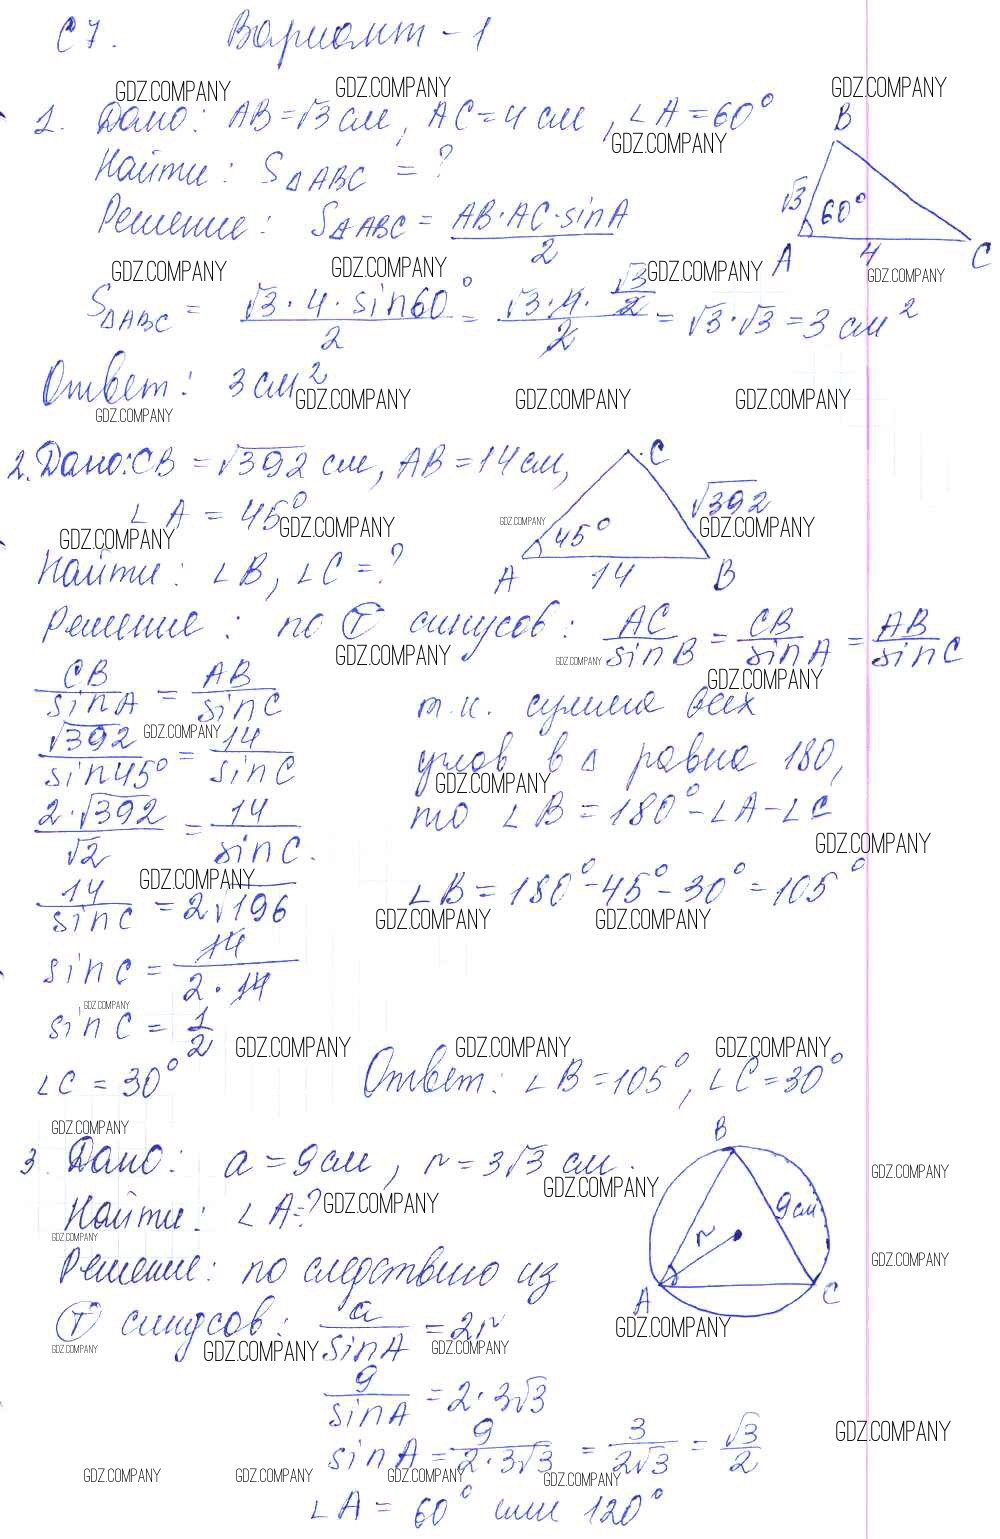 С 7. Вариант - 1
GDZ.COMPANY GDZ.COMPANY GDZ.COMPANY
1. Дано: AB = √3 см, AC = 4 см, ∠A = 60°
GDZ.COMPANY
B
√3 60°
A 4 C
Найти: S△ABC = ?
Решение: S△ABC = AB·AC·sinA / 2
GDZ.COMPANY GDZ.COMPANY GDZ.COMPANY GDZ.COMPANY
S△ABC = √3·4·sin60° / 2 = √3·4·√3/2 / 2 = √3·√3 = 3 см²
Ответ: 3 см²
GDZ.COMPANY GDZ.COMPANY GDZ.COMPANY GDZ.COMPANY
2. Дано: CB = √392 см, AB = 14 см,
∠A = 45°
C
√392
45°
A 14 B
GDZ.COMPANY GDZ.COMPANY GDZ.COMPANY GDZ.COMPANY
Найти: ∠B, ∠C = ?
Решение: по Т синусов: AC/sinB = CB/sinA = AB/sinC
GDZ.COMPANY GDZ.COMPANY GDZ.COMPANY
CB/sinA = AB/sinC
√392/sin45° = 14/sinC
GDZ.COMPANY
2·√392/√2 = 14/sinC.
14/sinC = 2√196
sinC = 14/2·14
sinC = 1/2
∠C = 30°
т.к. сумма всех
углов в △ равна 180,
GDZ.COMPANY
то ∠B = 180° - ∠A - ∠C
GDZ.COMPANY
GDZ.COMPANY
∠B = 180° - 45° - 30° = 105°
GDZ.COMPANY GDZ.COMPANY
GDZ.COMPANY
GDZ.COMPANY GDZ.COMPANY GDZ.COMPANY
Ответ: ∠B = 105°, ∠C = 30°
GDZ.COMPANY
3. Дано: a = 9 см, r = 3√3 см.
B
9 см
r
A C
GDZ.COMPANY GDZ.COMPANY GDZ.COMPANY
Найти: ∠A = ?
GDZ.COMPANY GDZ.COMPANY
Решение: по следствию из
Т синусов: a/sinA = 2r
GDZ.COMPANY GDZ.COMPANY GDZ.COMPANY GDZ.COMPANY
9/sinA = 2·3√3
sinA = 9/2·3√3 = 3/2√3 = √3/2
GDZ.COMPANY
GDZ.COMPANY GDZ.COMPANY GDZ.COMPANY GDZ.COMPANY
∠A = 60° или 120°